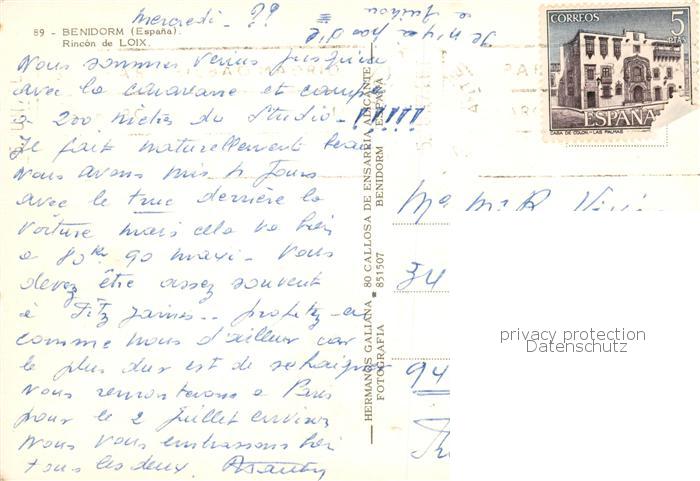 89 - BENIDORM (España).
Rincón de LOIX.
Mercredi - ??
Je n'y a pas de
Nous sommes venus jusqu'ici
avec la caravane et campe
à 200 mètres du Studio - !!!!!!
Il fait naturellement beau
Nous avons mis 4 jours
avec le truc derrière la
voiture mais cela va bien
à 80 km 90 maxi - Vous
devez être assez souvent
à Fitz James - profitez-en
comme nous d'ailleurs car
le plus dur est de
Nous remonterons à Paris
pour le 2 juillet environ
Nous vous embrassons bien
tous les deux.
HERMANOS GALIANA * 80 CALLOSA DE ENSARRIA ALICANTE
FOTOGRAFIA 851507 BENIDORM ESPAÑA
CORREOS 5 PTAS
CASA DE COLON - LAS PALMAS
ESPAÑA
34
94
privacy protection
Datenschutz